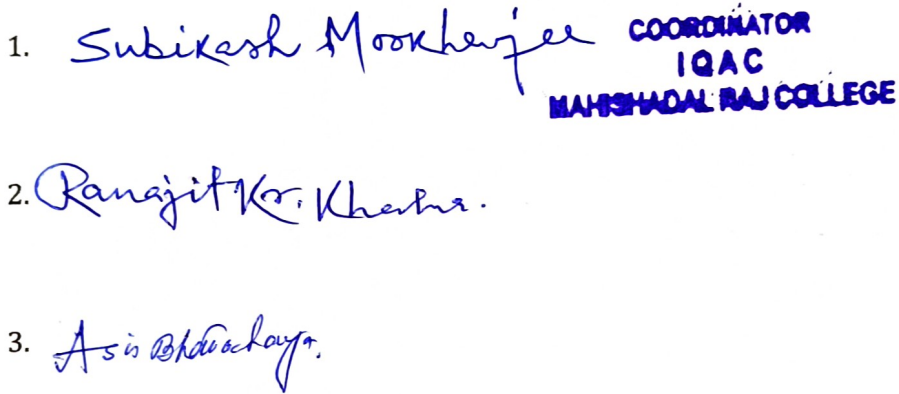 1. Subikash Mookherjee
COORDINATOR
IQAC
MAHISHADAL RAJ COLLEGE
2. Ranajit Kr. Khalua.
3. Asis Bhattacharya.